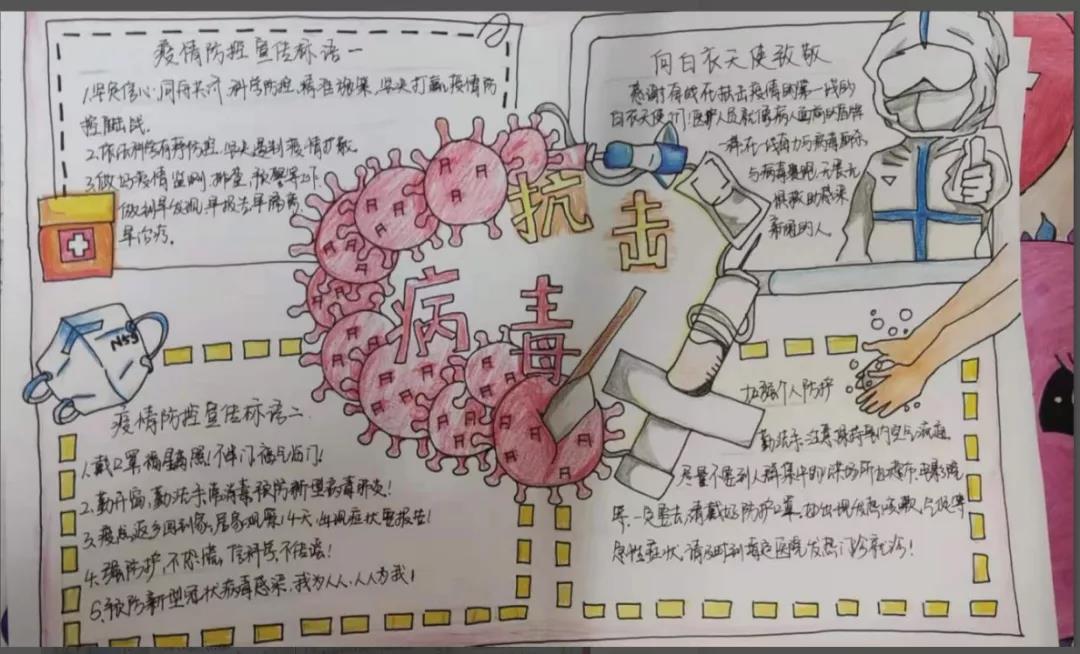 疫情防控宣传标语一
1.坚定信心、同舟共济、科学防控、精准施策、坚决打赢疫情防
控阻击战.
2.依法科学有序防控,坚决遏制疫情扩散.
3.做好疫情监测、排查、预警等工作.
做到早发现、早报告、早隔离、
早治疗。
向白衣天使致敬
感谢奋战在抗击疫情的第一线的
白衣天使们!医护人员就像病人面前的盾牌
一样,在一线奋力与病毒
与病毒赛跑,
救助感染
的人。
抗击
病毒
N95
疫情防控宣传标语二
1.戴口罩福星高照!不串门福气临门!
2.勤开窗,勤洗手床消毒预防新型病毒肺炎!
3.疫点返乡回到家,居家观察14天,出现症状要报告!
4.强防护,不恐慌,信科学,不传谣!
5.预防新型冠状病毒感染,我为人人,人人为我!
加强个人防护
勤洗手、注意保持室内空气流通,
尽量不要到人群集中的公共场所如超市、电影院
等.一定要去,请戴好防护口罩,如出现发热咳嗽、气促等
急性症状,请及时到指定医院发热门诊就诊!